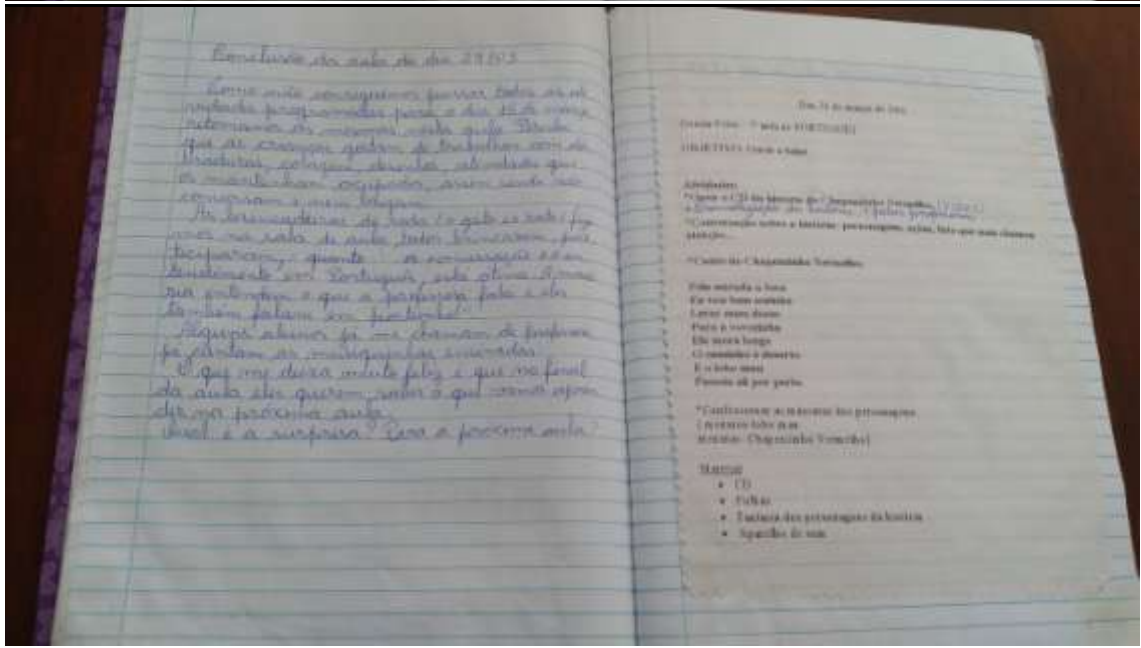 Conclusão da aula do dia 29/03
Como não conseguimos passar todas as ati
vidades programadas para o dia 15 de março
retomamos as mesmas nesta aula. Percebi
que as crianças gostam de trabalhar com do
braduras, colagem, desenhos, atividades que
os mantenham ocupados, assim sendo não
conversam e nem brigam.
As brincadeiras de roda (o gato e o rato) fize
mos na sala de aula, todos brincaram, par
ticiparam, quanto a conversação e o en
tendimento em Português, está ótimo. A maio
ria entendem o que a professora fala e eles
também falam em português.
Alguns alunos já me chamam de professora
já cantam as musiquinhas ensinadas.
O que me deixa muito feliz é que no final
da aula eles querem saber o que vamos apren
der na próxima aula.
Qual é a surpresa? Para a próxima aula?
de março de
PORTUGUÊS
OBJETIVO: Ouvir e
Atividades:
*Ouvir o CD da história da Chapeuzinho Vermelho
da história (pela professora)
*Conversação sobre a história: personagens, ações, fato que mais chamou
atenção...
*Canto da Chapeuzinho Vermelho.
Pela estrada a fora
Eu vou bem sozinha
Levar esses doces
Para a vovozinha
Ela mora longe
O caminho é deserto
E o lobo mau
Passeia ali por perto.
*Confeccionar as máscaras dos personagens
(meninos-lobo mau
meninas- Chapeuzinho Vermelho)
Material
• CD
• Folhas
• dos personagens da história
• Aparelho de som